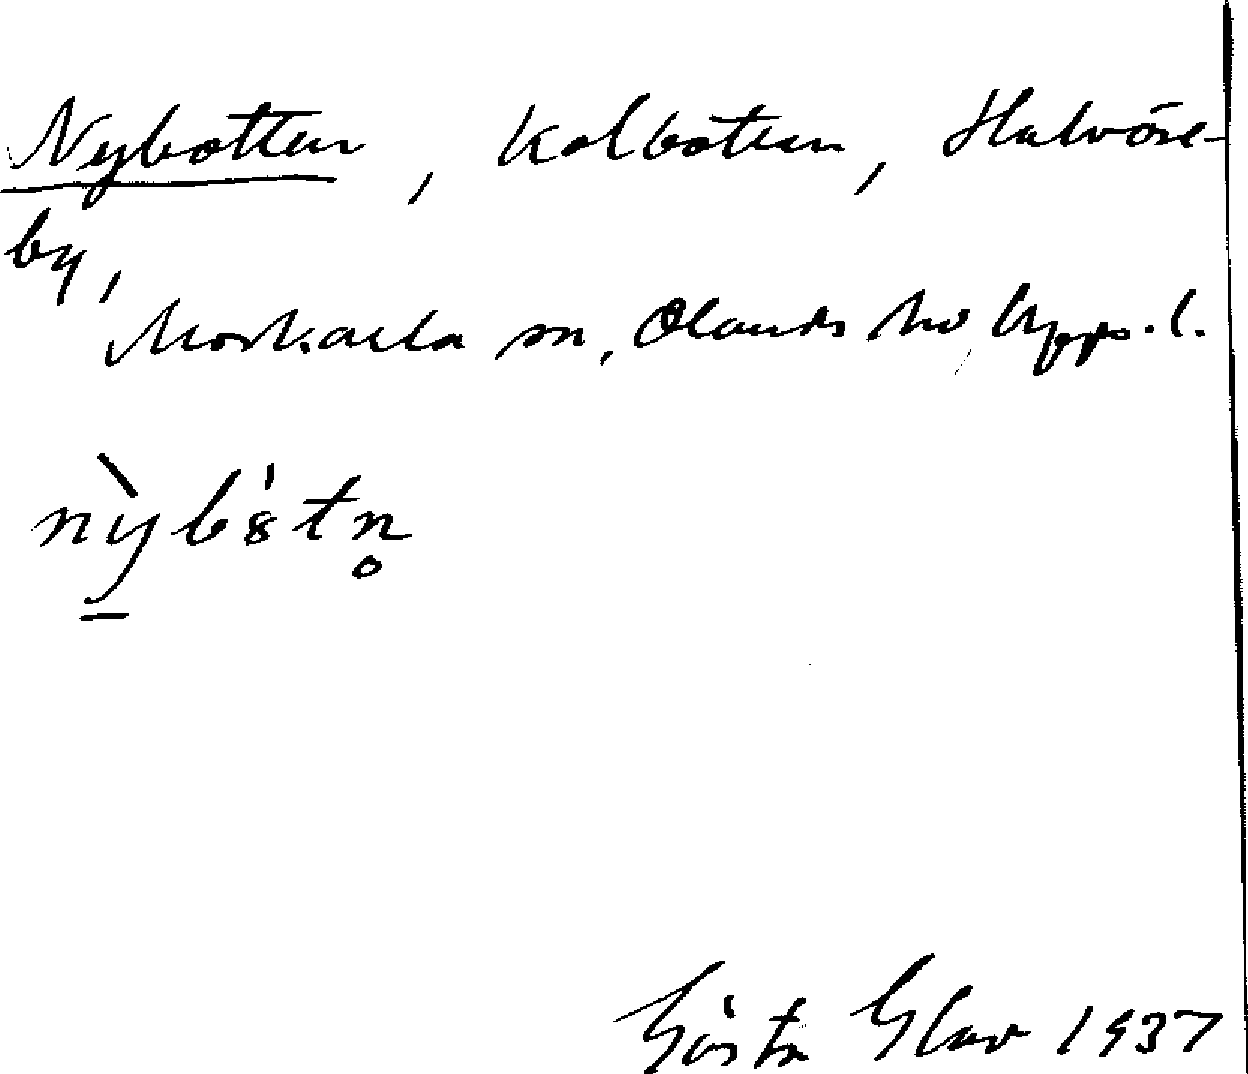 Nybotten, Kolbotten, Halvöre-
by,
Morkarla sn, Olands hd, Upps. l.
nỳbs̍tn̥
Gösta Glav 1937